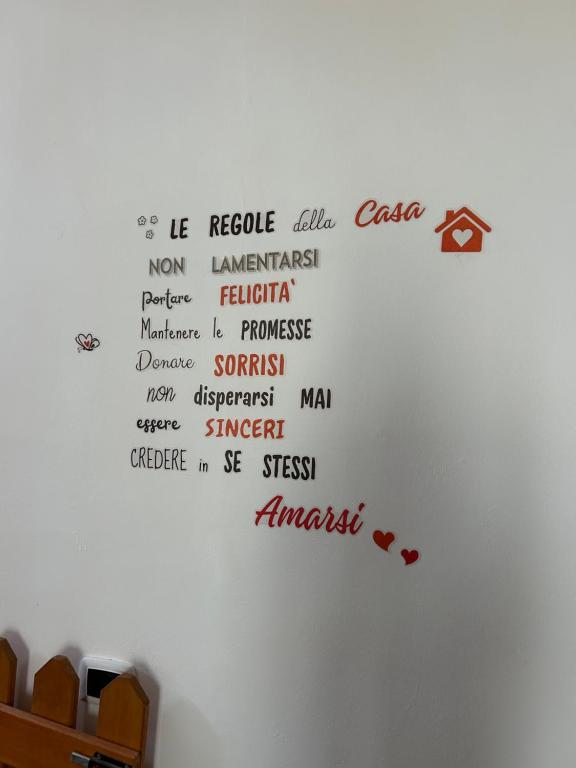 LE REGOLE della Casa
NON LAMENTARSI
portare FELICITA`
Mantenere le PROMESSE
Donare SORRISI
non disperarsi MAI
essere SINCERI
CREDERE in SE STESSI
Amarsi